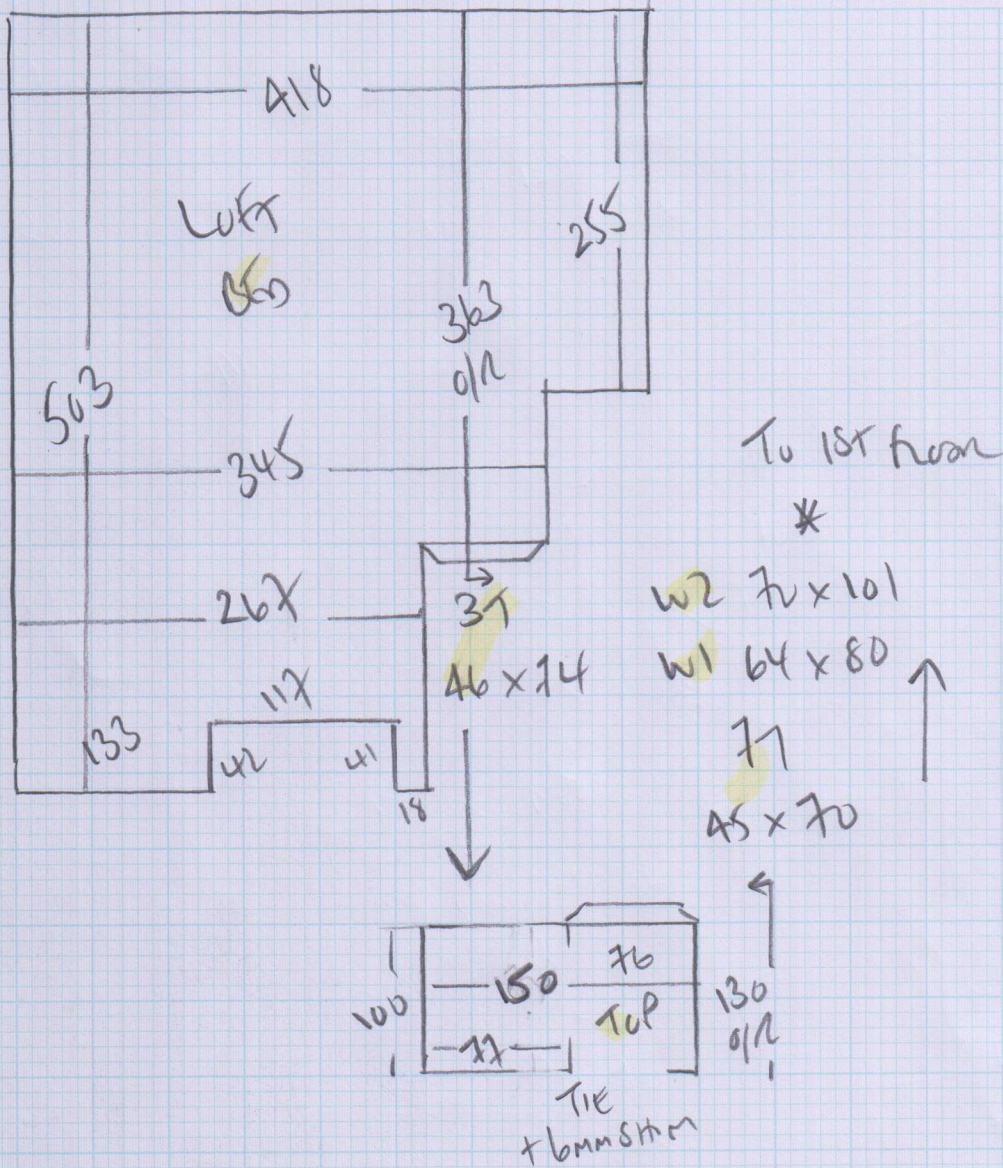 418
LOFT
BED
255
363
O/R
503
345
To 1ST floor
*
267
3T
W2 70 x 101
46 x 74
W1 64 x 80
117
133
42
41
18
45 x 70
76
150
TOP
100
130
O/R
77
TIE
+ 6mm SHIM